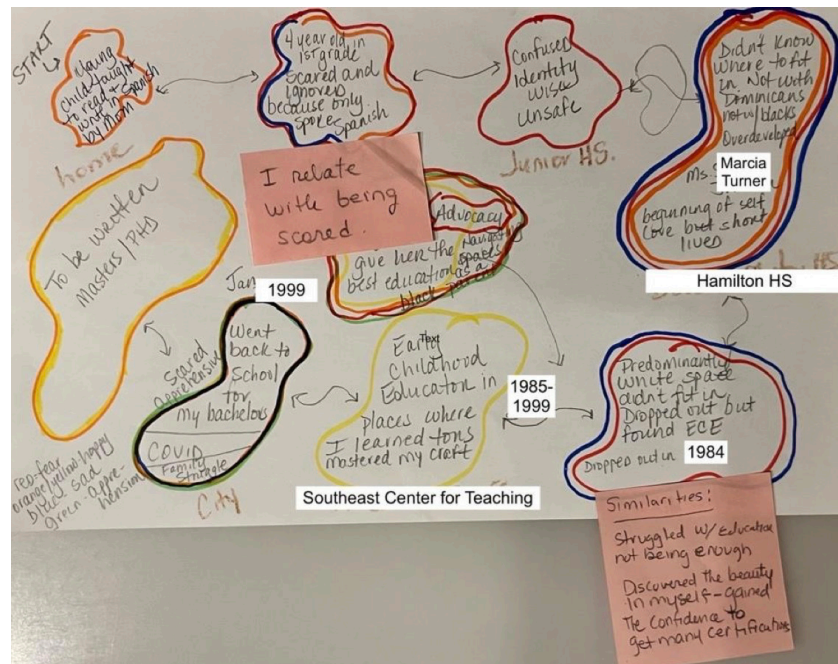 START
Young
child taught
to read +
write in Spanish
by Mom
home
4 year old in
1st grade
Scared and
ignored
because only
spoke Spanish
Confused
Identity
wise
unsafe
Junior HS.
Didn't Know
where to fit
in. Not with
Dominicans
not w/ blacks
Overdeveloped
Ms.
Marcia
Turner
beginning of self
love but short
lived
Hamilton HS
HS
I relate
with being
scared.
Advocacy
Navigating
spaces
as a
black parent
give her the
best education
1999
To be written
Masters/PHD
Scared
apprehensive
Went
back to
School
for
my bachelors
COVID
Family
Struggle
City
red-fear
orange/yellow happy
blue sad
green-appre-
hension
Text
Early
Childhood
Educator in
places where
I learned tons
mastered my craft
1985-
1999
Southeast Center for Teaching
Predominantly
white space
didn't fit in
Dropped out but
found ECE
Dropped out in 1984
Similarities:
Struggled w/Education
not being enough
Discovered the beauty
in myself-gained
The confidence to
get many certifications